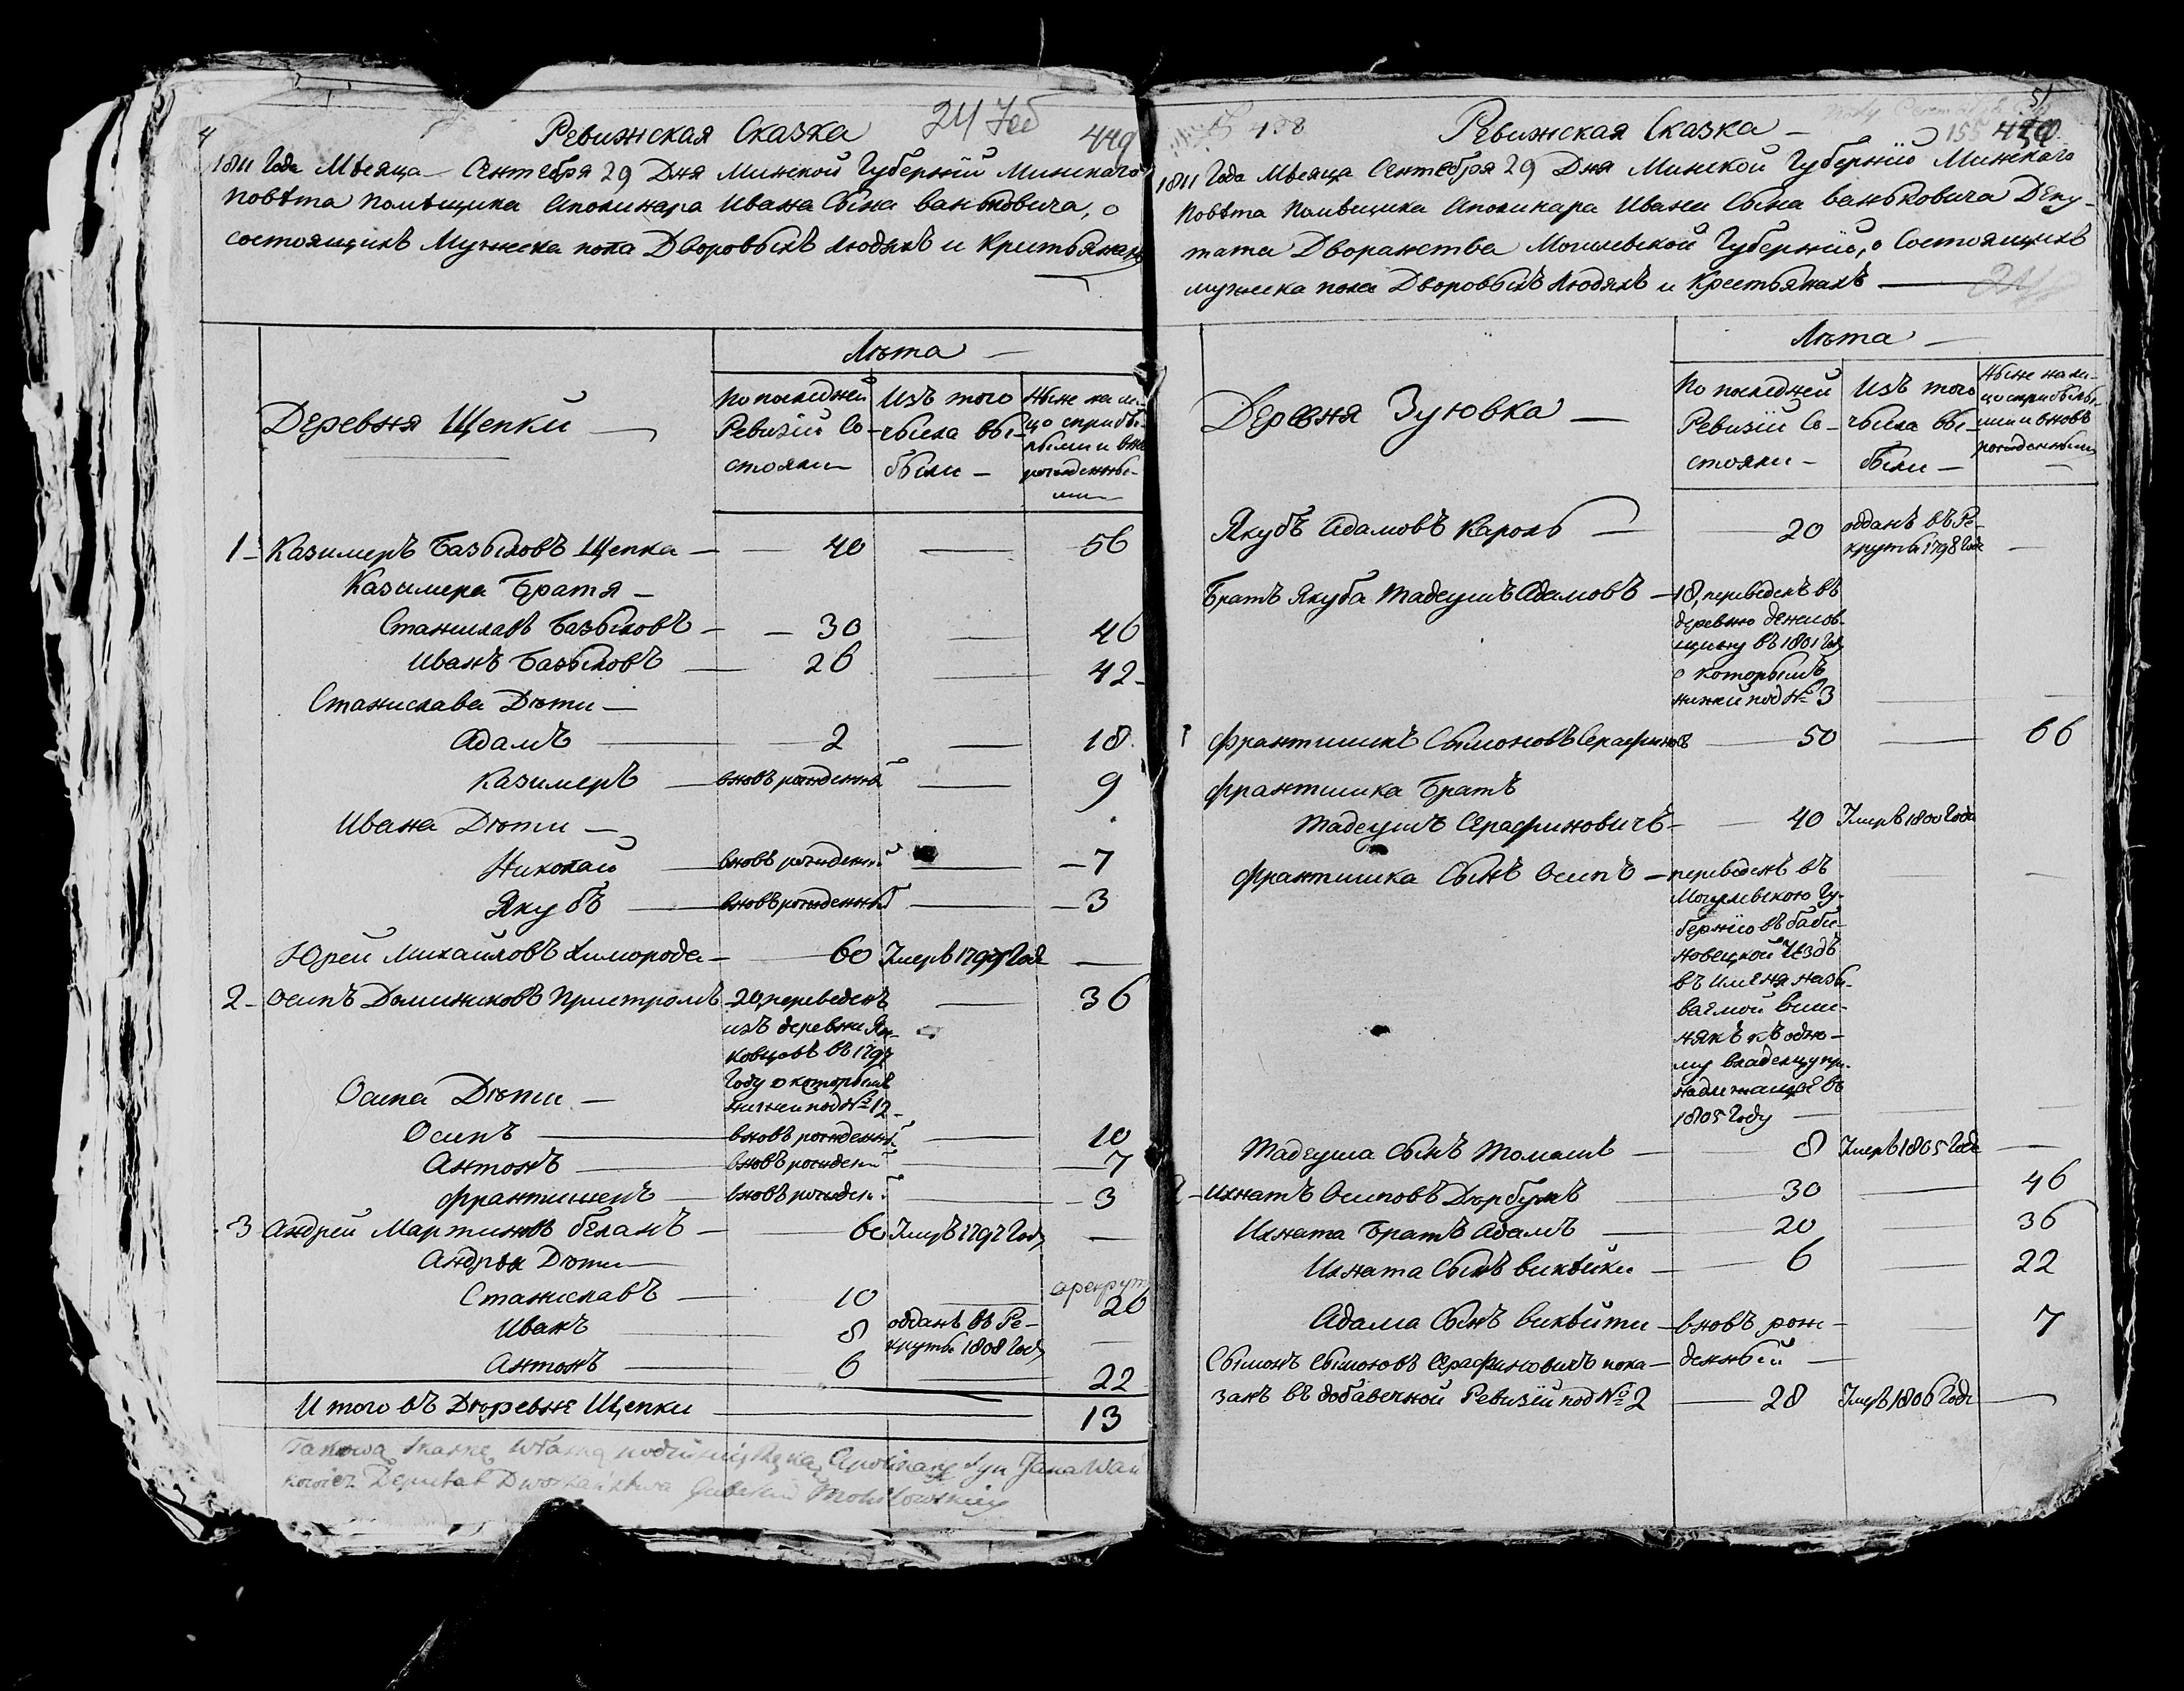 Ревижская Сказка
449
1811 Года Мѣсяца Сентебря 29 Дня Минской Губерніи Минскаго
повѣта помѣщика Аполинара Ивана Сына Ваньковича, о
состоящихъ Мужеска пола Дворовыхъ людяхъ и Крестьянахъ
Лѣта
Деревня Щепки
По последней Ревизіи Состояли
Изъ того числа выбыли
Ныне на лицо
1 Казимеръ Базылевъ Щепка 40 56
Казимера Братя
Станиславъ Базылевъ 30 46
Иванъ Базылевъ 26 42
Станислава Дѣти
Адамъ 2 18
Казимеръ вновъ рожденный 9
Ивана Дѣти
Николай вновъ рожденный 7
Якубъ вновъ рожденный 3
Юрей Михайловъ 60 Умеръ 1797 Года
2 Осипъ Доминиковъ Пристромъ 20, переведенъ 36
изъ деревни Ян-
ковцовъ въ 1797
Году о которымъ
ниже под № 12
Осипа Дѣти
Осипъ вновъ рожденный 10
Антонъ вновъ рожденный 7
Франтишекъ вновъ рожден. 3
3 Андрей Мартиновъ Беланъ 60 Умеръ 1797 Году
Андрея Дѣти
Станиславъ 10 26
Иванъ 8 отданъ въ Ре-
круты 1808 Году
Антонъ 6 22
Итого въ Деревне Щепки 13
Apolinary Syn Jana Wań
kowicz Deputat Dworzaństwa Gubernii Mohilowskiey
51
438
Ревижская Сказка
155
1811 Года Мѣсяца Сентебря 29 Дня Минской Губерніи Минскаго
Повѣта Помѣщика Аполинара Ивана Сына Ваньковича Депу-
тата Дворанства Могилевской Губерніи, о Состоящихъ
мужеска пола Дворовыхъ людяхъ и Крестьянахъ
Лѣта
Деревня Зуювка
По последней Ревизіи Состояли
Изъ того числа выбыли
Ныне на лицо с прибылыми и вновъ рожденными
Якубъ Адамовъ Кароль 20 отданъ въ Ре-
круты 1798 Годе
Братъ Якуба Тадеушъ Адамовъ 18, переведенъ въ
деревню Денисов-
щизну въ 1801 Году
о которымъ
ниже под № 3
1 Франтишекъ Сымоновъ Серафиновъ 50 66
Франтишка Братъ
Тадеушъ Серафиновичъ 40 Умеръ 1800 Года
Франтишка Сынъ Осипъ переведенъ въ
Могилевскою Гу-
бернію въ Баби-
новецкой Уездъ
въ Имѣня назы-
ваемой Виш-
някъ къ одно-
му владелцу при-
надлежащое въ
1805 Году
Тадеуша Сынъ Томашъ 8 Умеръ 1805 Года
2 Ихнатъ Осиповъ 30 46
Ихната Братъ Адамъ 20 36
Ихната Сынъ 6 22
Адама Сынъ вновъ рож- 7
денный
Сымонъ Сымоновъ Серафиновичъ пока-
занъ въ добавечной Ревизіи под № 2 28 Умеръ 1806 Года